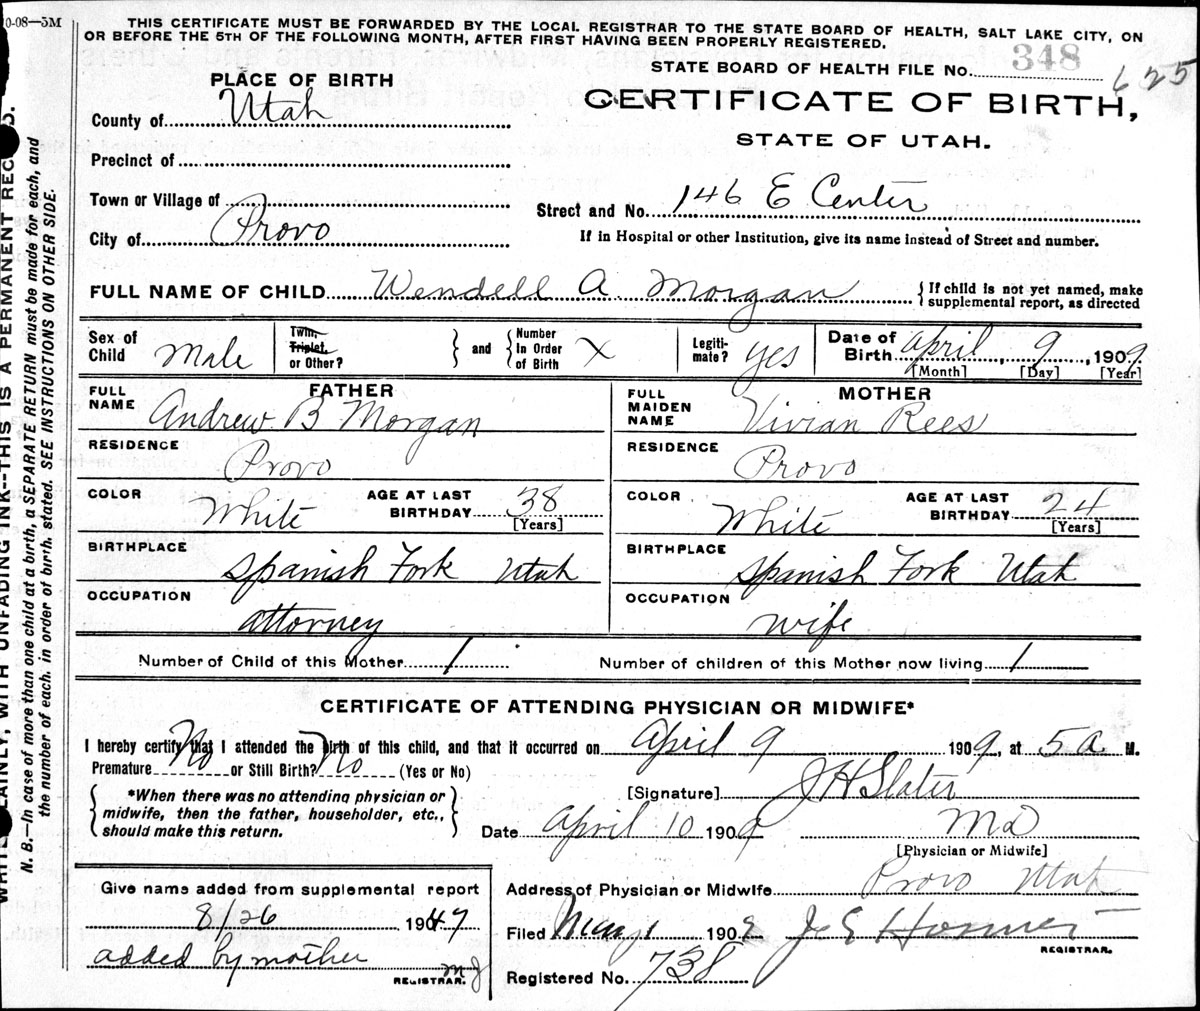 10-08—5M
THIS CERTIFICATE MUST BE FORWARDED BY THE LOCAL REGISTRAR TO THE STATE BOARD OF HEALTH, SALT LAKE CITY, ON
OR BEFORE THE 5TH OF THE FOLLOWING MONTH, AFTER FIRST HAVING BEEN PROPERLY REGISTERED.
STATE BOARD OF HEALTH FILE No. 348 625
CERTIFICATE OF BIRTH,
STATE OF UTAH.
PLACE OF BIRTH
County of Utah
Precinct of
Town or Village of
City of Provo
Street and No. 146 E Center
If in Hospital or other Institution, give its name instead of Street and number.
FULL NAME OF CHILD Wendell A Morgan
{ If child is not yet named, make
supplemental report, as directed
Sex of Child Male
Twin, Triplet, or Other? } and { Number In Order of Birth X
Legiti-mate? yes
Date of Birth April, 9, 1909
[Month] [Day] [Year]
FATHER
FULL NAME Andrew B Morgan
RESIDENCE Provo
COLOR White
AGE AT LAST BIRTHDAY 38 [Years]
BIRTHPLACE Spanish Fork Utah
OCCUPATION attorney
MOTHER
FULL MAIDEN NAME Vivian Rees
RESIDENCE Provo
COLOR White
AGE AT LAST BIRTHDAY 24 [Years]
BIRTHPLACE Spanish Fork Utah
OCCUPATION Wife
Number of Child of this Mother 1
Number of children of this Mother now living 1
CERTIFICATE OF ATTENDING PHYSICIAN OR MIDWIFE*
I hereby certify that I attended the birth of this child, and that it occurred on April 9 1909, at 5 a M.
Premature No or Still Birth? No (Yes or No)
{ *When there was no attending physician or
midwife, then the father, householder, etc.,
should make this return. }
[Signature] J H Slater
Date April 10 1909 MD
[Physician or Midwife]
Address of Physician or Midwife Provo Utah
Filed May 1 190
REGISTRAR.
Registered No. 738
Give name added from supplemental report
8/26 1947
added by mother
REGISTRAR. mj
N. B.—In case of more than one child at a birth, a SEPARATE RETURN must be made for each, and
the number of each, in order of birth, stated. SEE INSTRUCTIONS ON OTHER SIDE.
WITH UNFADING INK--THIS IS A PERMANENT